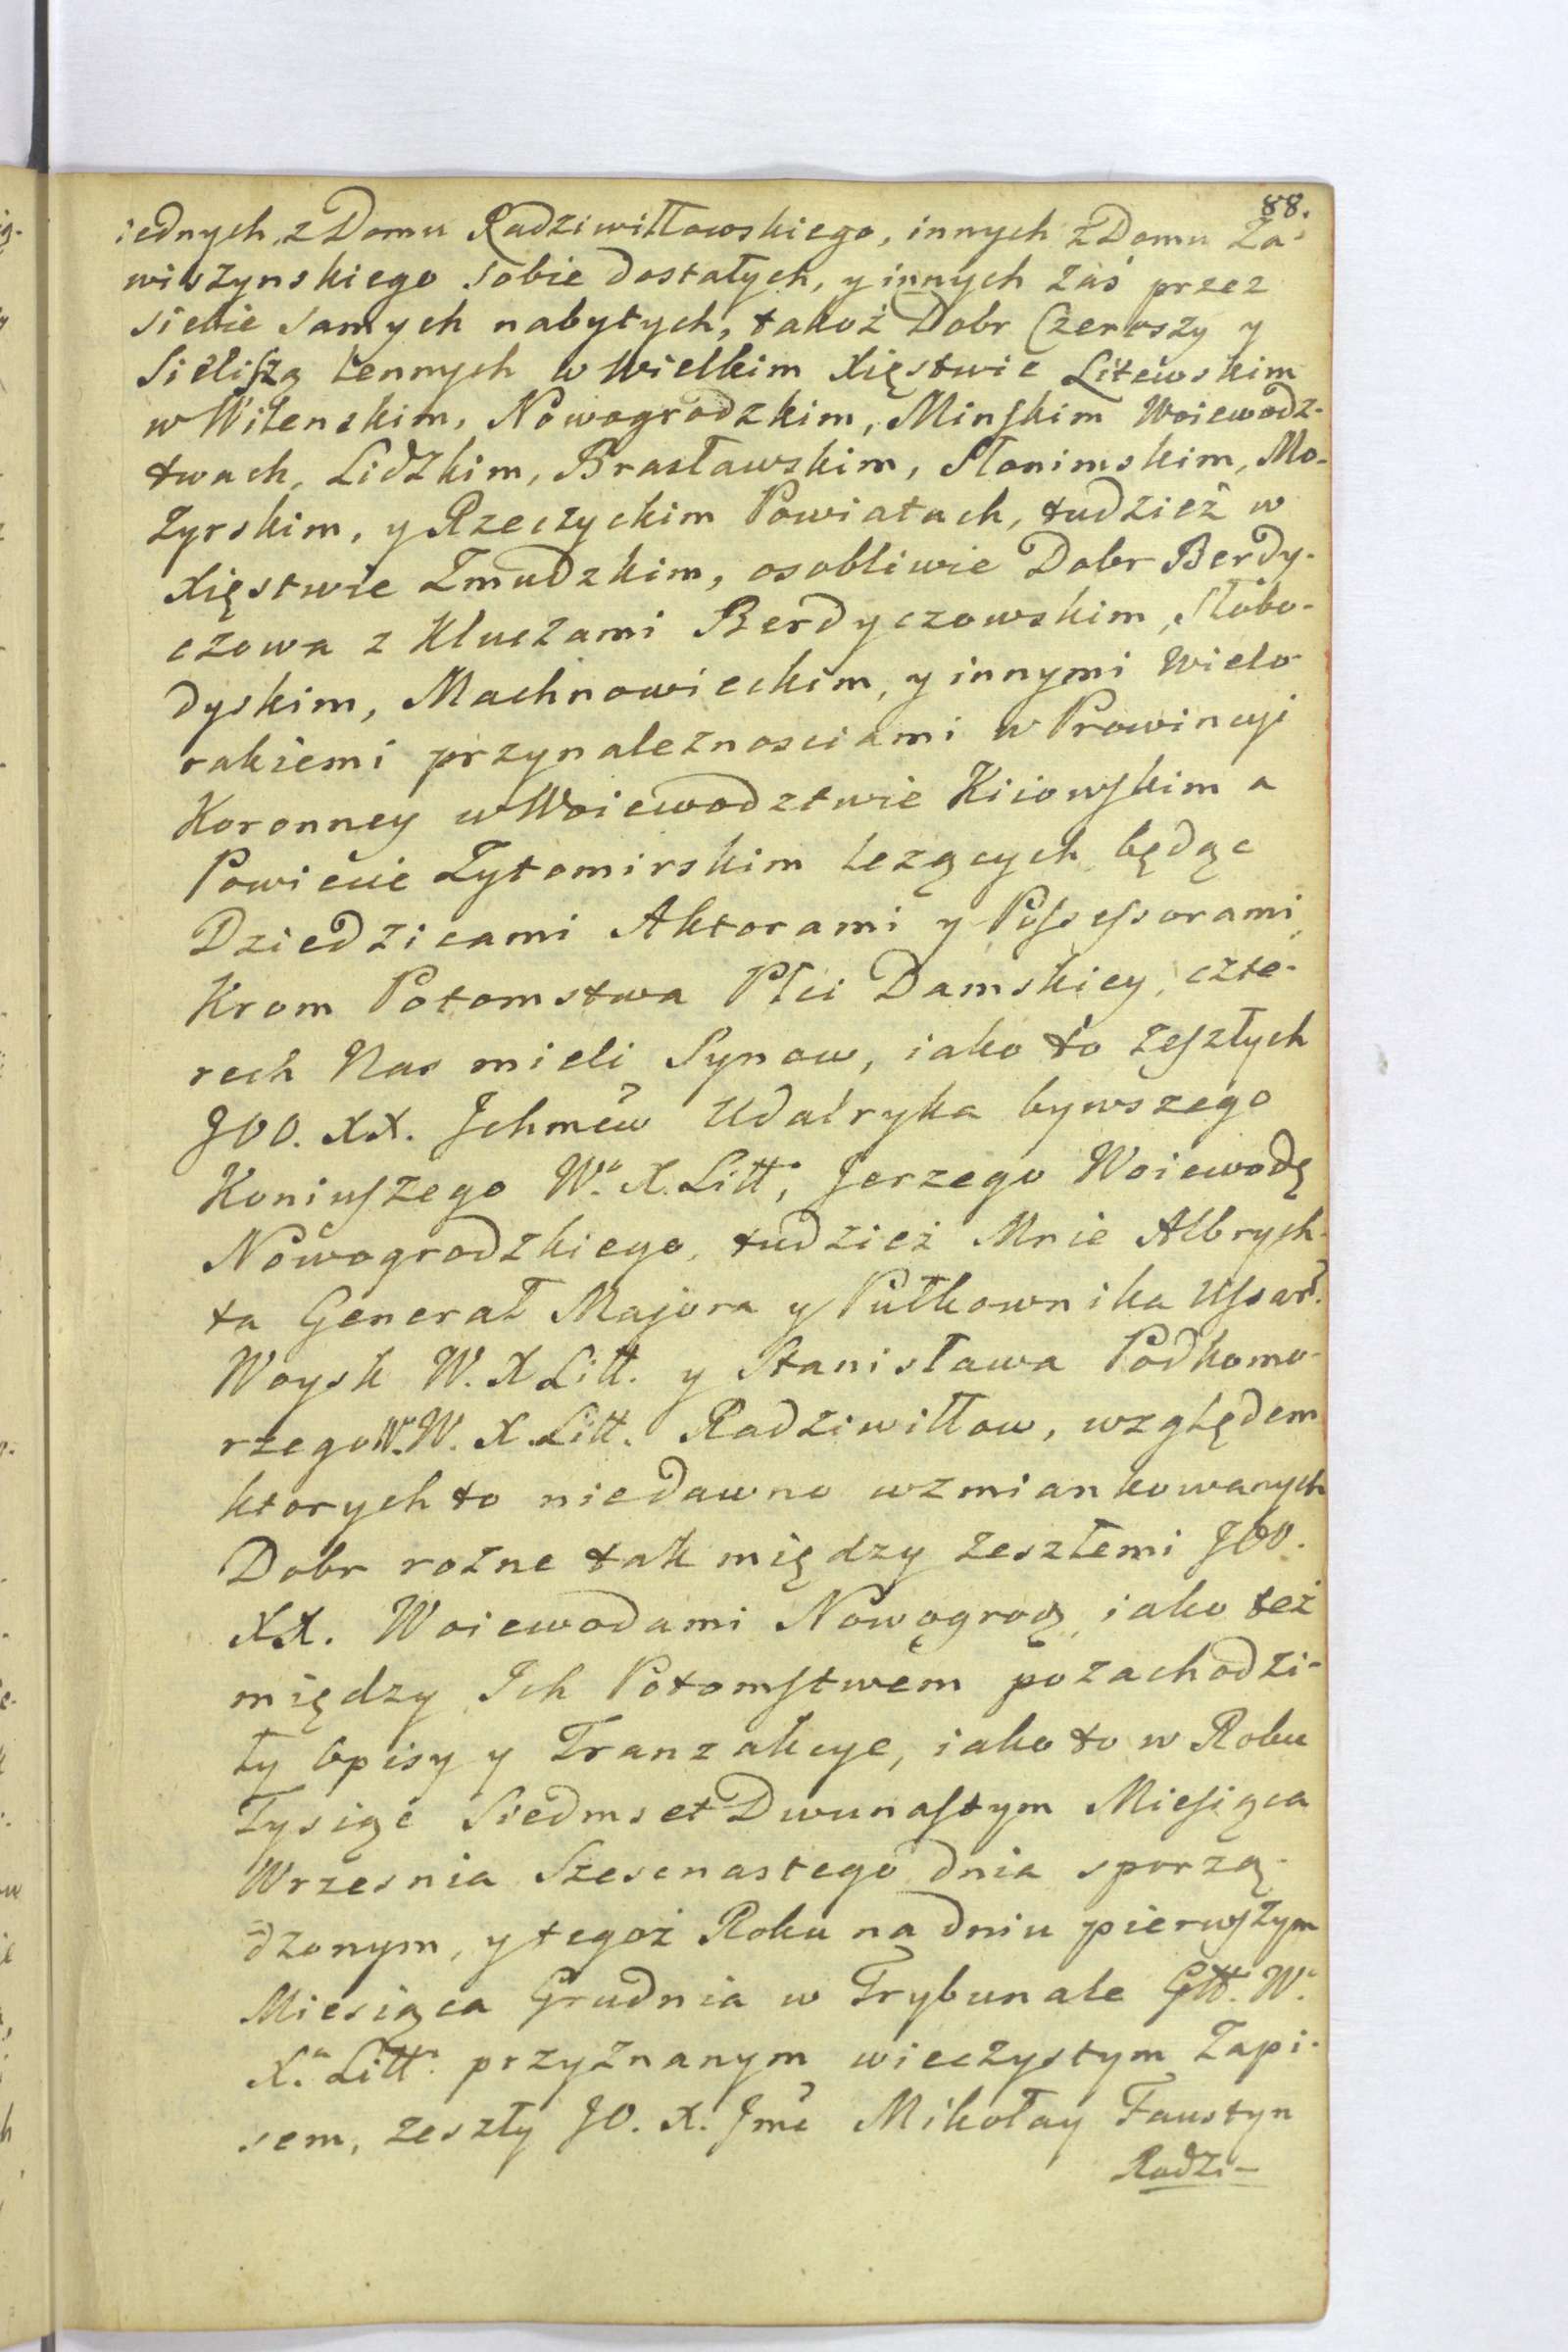 88.
iednych z Domu Radziwiłłowskiego, innych z Domu Za-
wiszynskiego sobie dostałych, y innych zaś przez
siebie samych nabytych, takoż Dobr Czeroszy y
Sielißzą lennych w Wielkim Xięstwie Litewskim
w Wilenskim, Nowogrodzkim, Minskim Woiewodz-
twach, Lidzkim, Brasławskim, Słonimskim, Mo-
zyrskim, y Rzeczyckim Powiatach, tudzież w
Xięstwie Zmudzkim, osobliwie Dobr Berdy-
czowa z Kluczami Berdyczowskim, Słobo-
dyskim, Machnowieckim, y innymi Wielo-
rakiemi przynaleznosciami w Prowincyi
Koronney w Woiewodztwie Kiiowskim a
Powiecie Zytomirskim lezących będąc
Dziedzicami Aktorami y Possessorami,
Krom Potomstwa Płci Damskiey, czte-
rech Nas mieli Synow, iako to zeszłych
JOO. XX. Jchmćw Udalryka bywszego
Koniuszego W. X. Litt; Jerzego Woiewodę
Nowogrodzkiego, tudzież Mnie Albrych-
ta Generał Majora y Pułkownika Ussar.
Woysk W. X Litt. y Stanisława Podkomo-
rzego W. W. X. Litt. Radziwiłłow, względem
ktorych to niedawno wzmiankowanych
Dobr rożne tak między zeszłemi JOO.
XX. Woiewodami Nowogrodz, iako też
między Jch Potomstwem pozachodzi-
ły Opisy y Tranzakcye, iako to w Roku
Tysiąc Siedmset Dwunastym Miesiąca
Wrzesnia Szesnastego dnia sporzą-
dzonym, y tegoż Roku na dniu pierwszym
Miesiąca Grudnia w Trybunale Głł. W.
X. Litt. przyznanym wieczystym Zapi-
sem, zeszły JO. X. Jmć Mikołay Faustyn
Radzi-